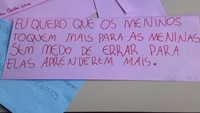 EU QUERO QUE OS MENINOS
TOQUEM MAIS PARA AS MENINAS
SEM MEDO DE ERRAR PARA
ELAS APRENDEREM MAIS.